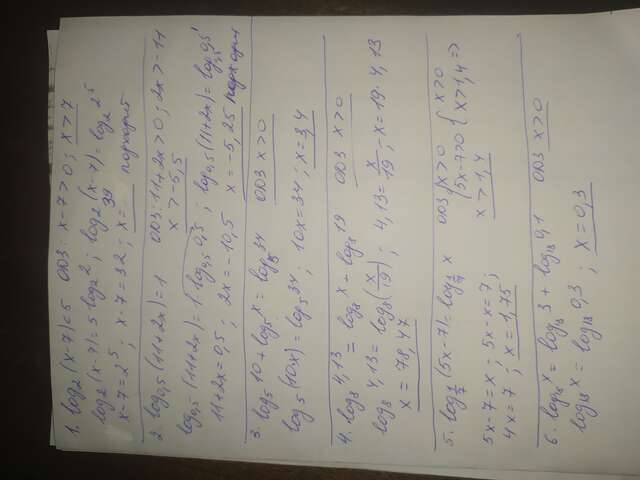 1. log₂(x-7)=5 ОДЗ: x-7>0; x>7
log₂(x-7)=5·log₂2; log₂(x-7)=log₂2⁵
x-7=2⁵; x-7=32; x=39 подходит
2. log₀,₅(11+2x)=1 ОДЗ: 11+2x>0; 2x>-11
x>-5,5
log₀,₅(11+2x)=1·log₀,₅0,5; log₀,₅(11+2x)=log₀,₅0,5¹
11+2x=0,5; 2x=-10,5 x=-5,25 подходит
3. log₅10+log₅x=log₅34 ОДЗ x>0
log₅(10x)=log₅34; 10x=34; x=3,4
4. log₈4,13=log₈x+log₈19 ОДЗ x>0
log₈4,13=log₈(x/19); 4,13=x/19; x=19·4,13
x=78,47
5. log₁/₇(5x-7)=log₁/₇x ОДЗ {x>0 {x>0
{5x-7>0 {x>1,4 =>
5x-7=x; 5x-x=7; x>1,4
4x=7; x=1,75
6. log₁₈x=log₁₈3+log₁₈0,1 ОДЗ x>0
log₁₈x=log₁₈0,3; x=0,3